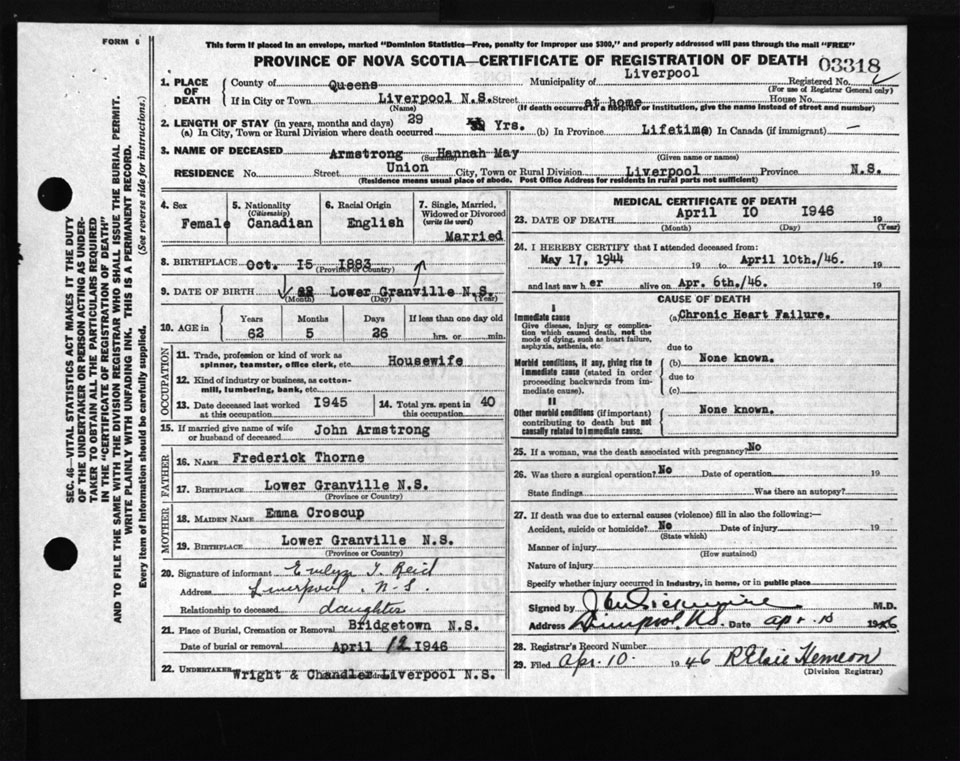 FORM 6
This form if placed in an envelope, marked "Dominion Statistics—Free, penalty for improper use $300," and properly addressed will pass through the mail "FREE"
PROVINCE OF NOVA SCOTIA—CERTIFICATE OF REGISTRATION OF DEATH 03318
1. PLACE OF DEATH
County of Queens Municipality of Liverpool Registered No.
(For use of Registrar General only)
If in City or Town Liverpool N.S. Street at home House No.
(Name) (If death occurred in a hospital or institution, give the name instead of street and number)
2. LENGTH OF STAY (in years, months and days)
(a) In City, Town or Rural Division where death occurred 29 Yrs. (b) In Province Lifetime (c) In Canada (if immigrant) —
3. NAME OF DECEASED Armstrong Hannah May
(Surname) (Given name or names)
RESIDENCE No. Street Union City, Town or Rural Division Liverpool Province N.S.
(Residence means usual place of abode. Post Office Address for residents in rural parts not sufficient)
4. Sex Female
5. Nationality (Citizenship) Canadian
6. Racial Origin English
7. Single, Married, Widowed or Divorced (write the word) Married
8. BIRTHPLACE Oct. 15 1883
(Province or Country)
9. DATE OF BIRTH Lower Granville N.S.
(Month) (Day) (Year)
10. AGE in Years Months Days If less than one day old
62 5 26 hrs. or min.
OCCUPATION
11. Trade, profession or kind of work as spinner, teamster, office clerk, etc. Housewife
12. Kind of industry or business, as cotton-mill, lumbering, bank, etc.
13. Date deceased last worked at this occupation 1945
14. Total yrs. spent in this occupation 40
15. If married give name of wife or husband of deceased John Armstrong
FATHER
16. NAME Frederick Thorne
17. BIRTHPLACE Lower Granville N.S.
(Province or Country)
MOTHER
18. MAIDEN NAME Emma Croscup
19. BIRTHPLACE Lower Granville N.S.
(Province or Country)
20. Signature of informant Evelyn T. Reid
Address Liverpool, N.S.
Relationship to deceased daughter
21. Place of Burial, Cremation or Removal Bridgetown N.S.
Date of burial or removal April 12 1946
22. UNDERTAKER Wright & Chandler Liverpool N.S.
MEDICAL CERTIFICATE OF DEATH
23. DATE OF DEATH April 10 1946 19
(Month) (Day) (Year)
24. I HEREBY CERTIFY that I attended deceased from:
May 17, 1944 19 to April 10th./46. 19
and last saw her alive on Apr. 6th./46. 19
CAUSE OF DEATH
I
Immediate cause (a) Chronic Heart Failure.
Give disease, injury or complication which caused death, not the mode of dying, such as heart failure, asphyxia, asthenia, etc.
due to
Morbid conditions, if any, giving rise to immediate cause (stated in order proceeding backwards from immediate cause).
(b) None known.
due to
(c)
II
Other morbid conditions (if important) contributing to death but not causally related to immediate cause.
None known.
25. If a woman, was the death associated with pregnancy? No
26. Was there a surgical operation? No Date of operation 19
State findings Was there an autopsy?
27. If death was due to external causes (violence) fill in also the following:—
Accident, suicide or homicide? No Date of injury 19
(State which)
Manner of injury
(How sustained)
Nature of injury
Specify whether injury occurred in industry, in home, or in public place
Signed by M.D.
Address Liverpool, N.S. Date Apr. 10 1946
28. Registrar's Record Number
29. Filed Apr. 10. 1946 R Elsie Hemeon
(Division Registrar)
SEC. 46—VITAL STATISTICS ACT MAKES IT THE DUTY
OF THE UNDERTAKER OR PERSON ACTING AS UNDER-
TAKER TO OBTAIN ALL THE PARTICULARS REQUIRED
IN THE "CERTIFICATE OF REGISTRATION OF DEATH"
AND TO FILE THE SAME WITH THE DIVISION REGISTRAR WHO SHALL ISSUE THE BURIAL PERMIT.
WRITE PLAINLY WITH UNFADING INK. THIS IS A PERMANENT RECORD.
Every item of information should be carefully supplied. (See reverse side for instructions.)